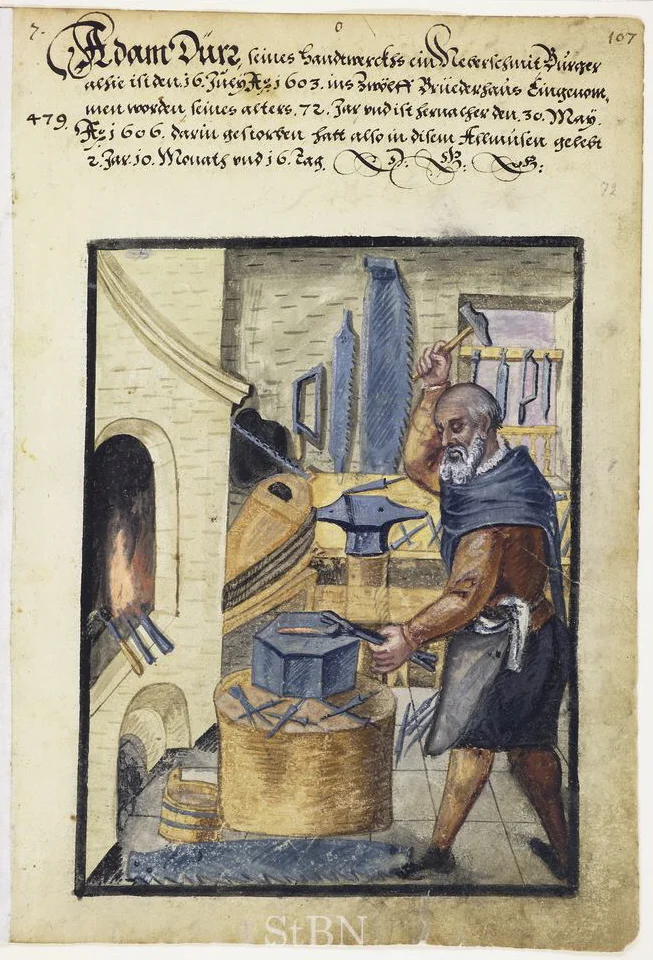 7.
0
107
Adam Dürr, seines Handtwerckhs ein Neberschmit Burger
alhie ist den. 16. July Aº: 1603. ins Zwölff Brüederhaus Eingenom,
men worden seines alters. 72. Jar vnd ist hernacher den. 30. May.
479. Aº: 1606. darin gestorben hatt also in disem Allmusen gelebt
2. Jar. 10. Monath vnd 16. Tag.
72
StBN